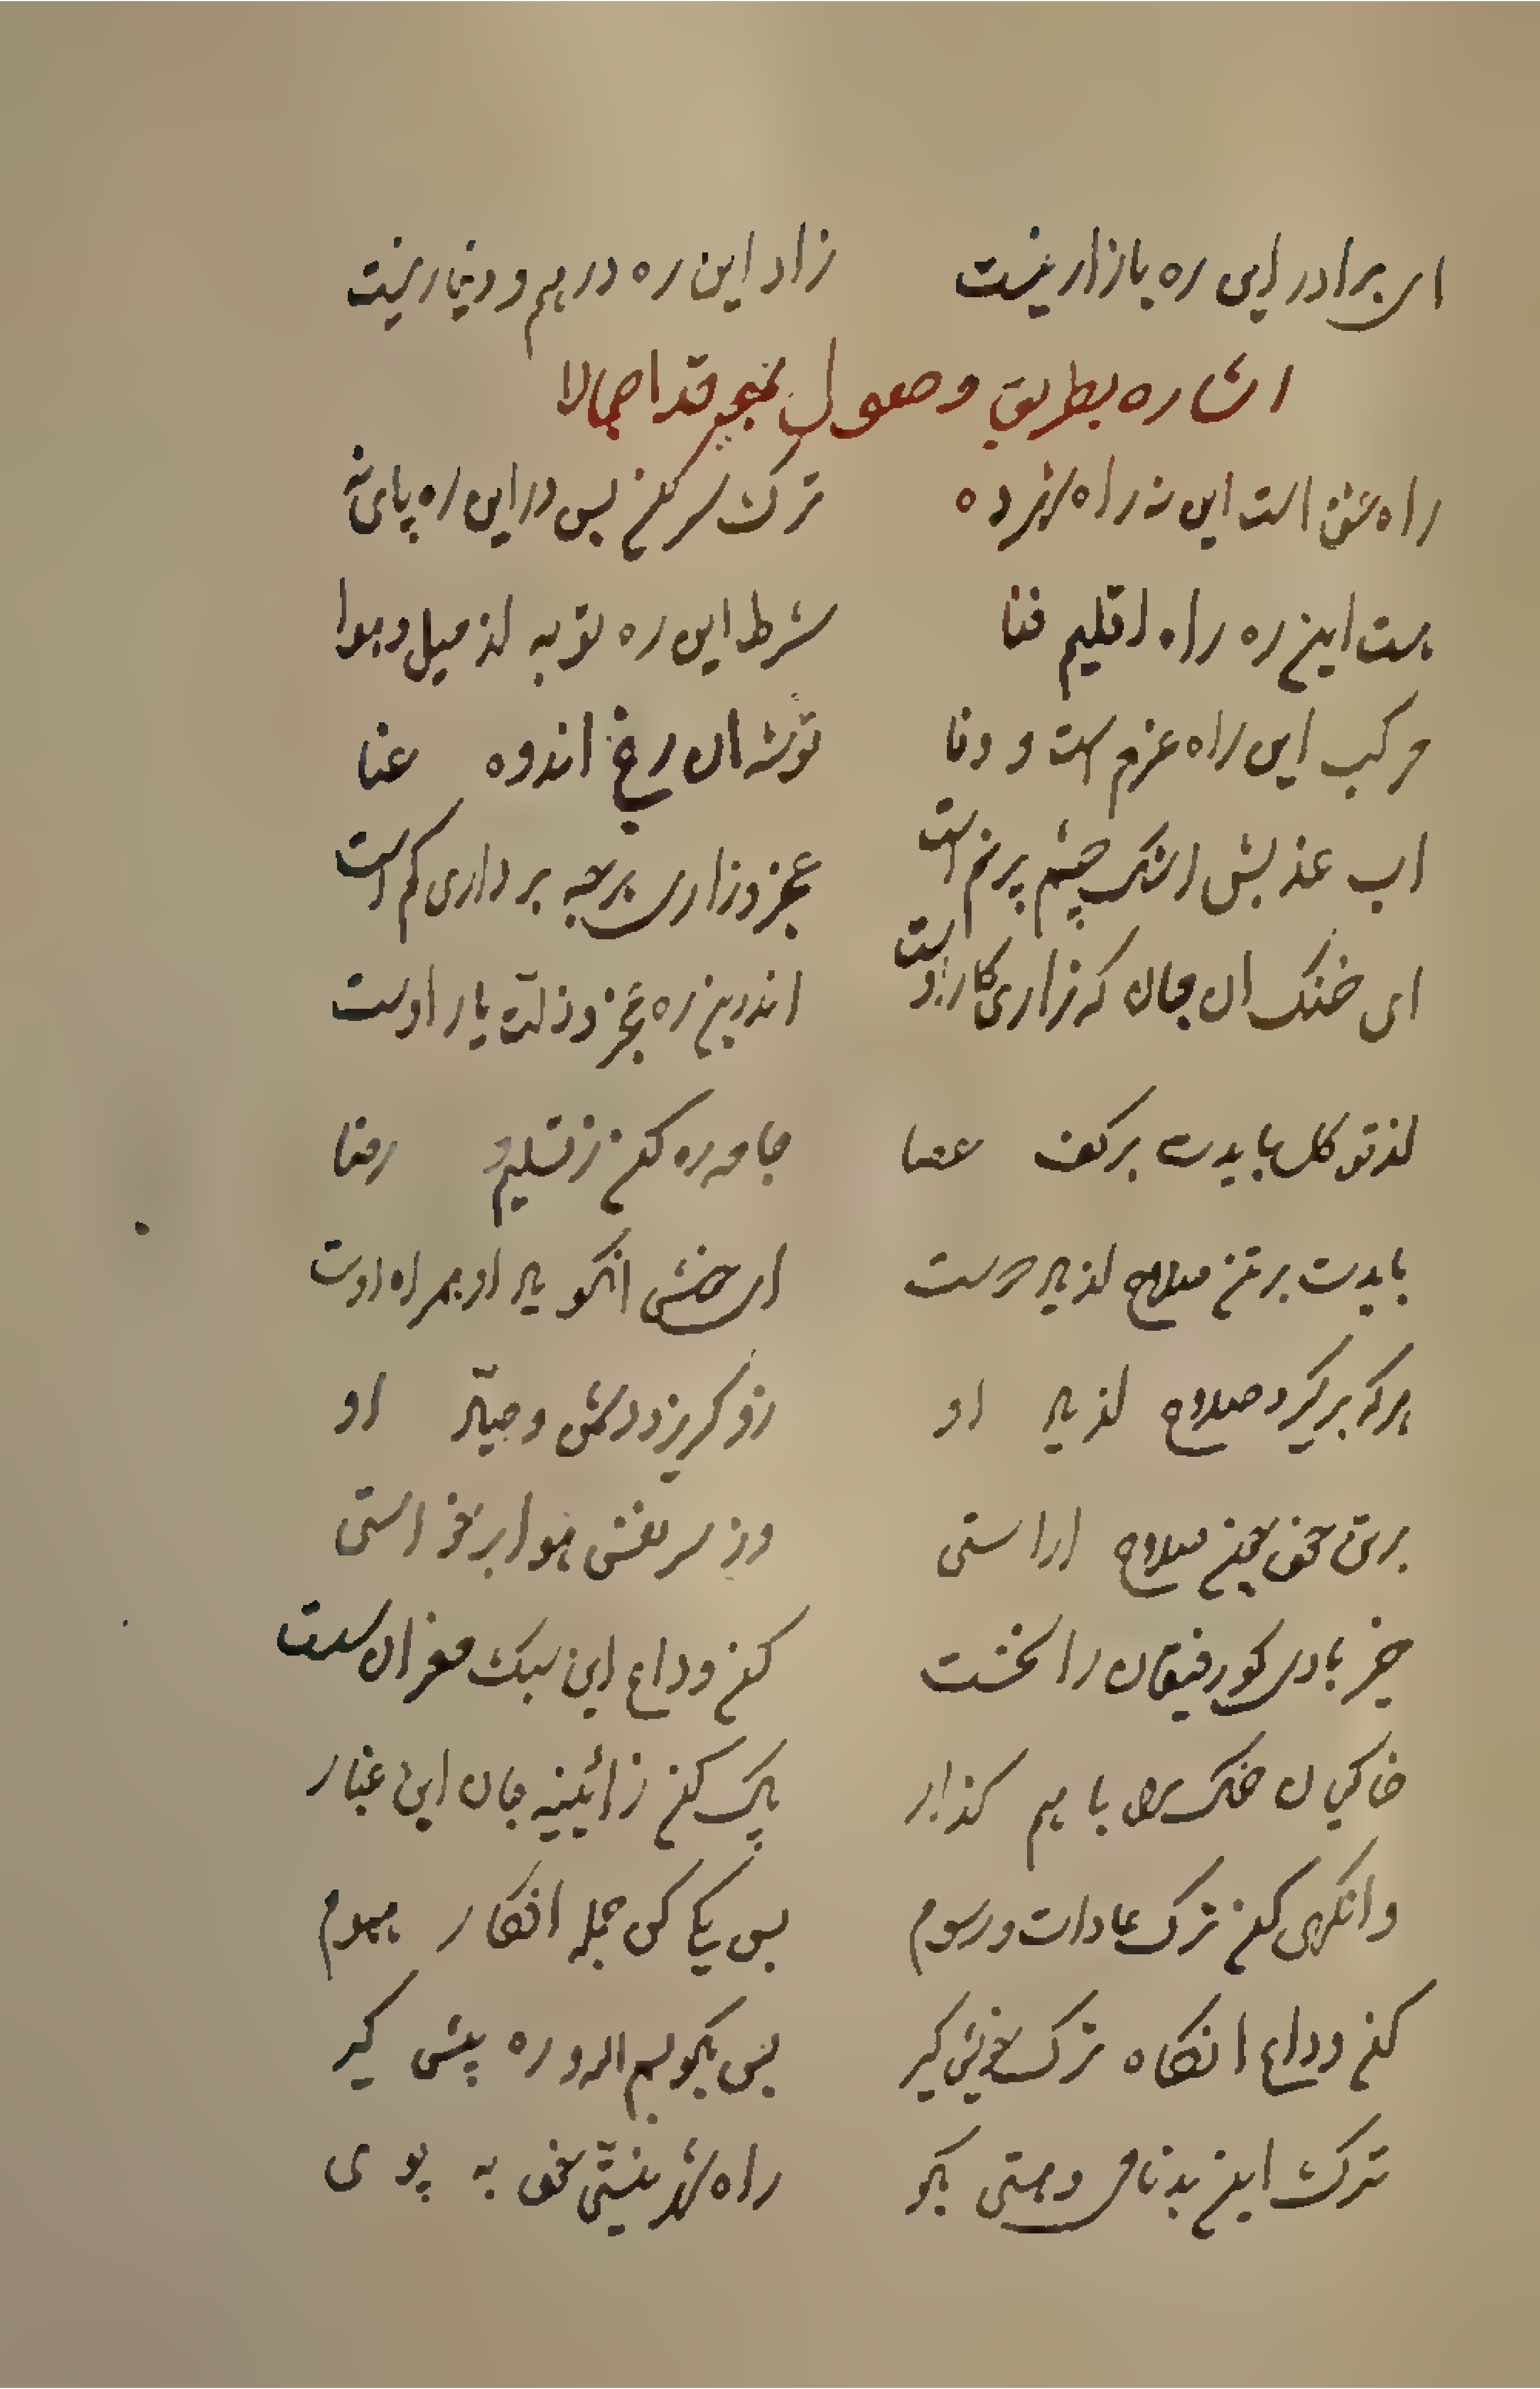 ای برادر این ره بازار نیست زاد این ره درهم و دینار نیست
اشاره بطریق وصول بحق اجمالا
راه عشق است این نه راه ده ترک سر کن پس در این ره پای نه
هست این ره راه اقلیم فنا شرط این ره توبه از میل و هوا
مرکب این راه عزم است و وفا توشه ان رنج اندوه عنا
اب عذبش اشک چشم پر نم است عجز و زاری هر چه برداری کم است
ای خنک ان جان که زاری کار اوست اندرین ره عجز و ذلت یار اوست
از توکل بایدت بر کف عصا جامه ره کن ز تسلیم و رضا
بایدت بر تن صلاح از یاد دوست ای خوش انکو یاد او همراه اوست
هر که بر گیرد صلاح از یاد او زو گریزد دشمن و صیاد او
بر تن خود چون صلاح اراستی وز سر نفس هوا برخواستی
خیز بادی کو رفیقان را نخست کن وداع این سبک مغزان سست
خاکیان خاک را با هم گذار پاک کن ز ائینه جان این غبار
وانگهی کن ترک عادات و رسوم پس یکی کن جمله افکار هموم
کن وداع انگاه ترک خویش گیر پس بگو بسم الله و ره پیش گیر
ترک این بدنامی و هستی بگو راه شهر نیستی خوی به پوی